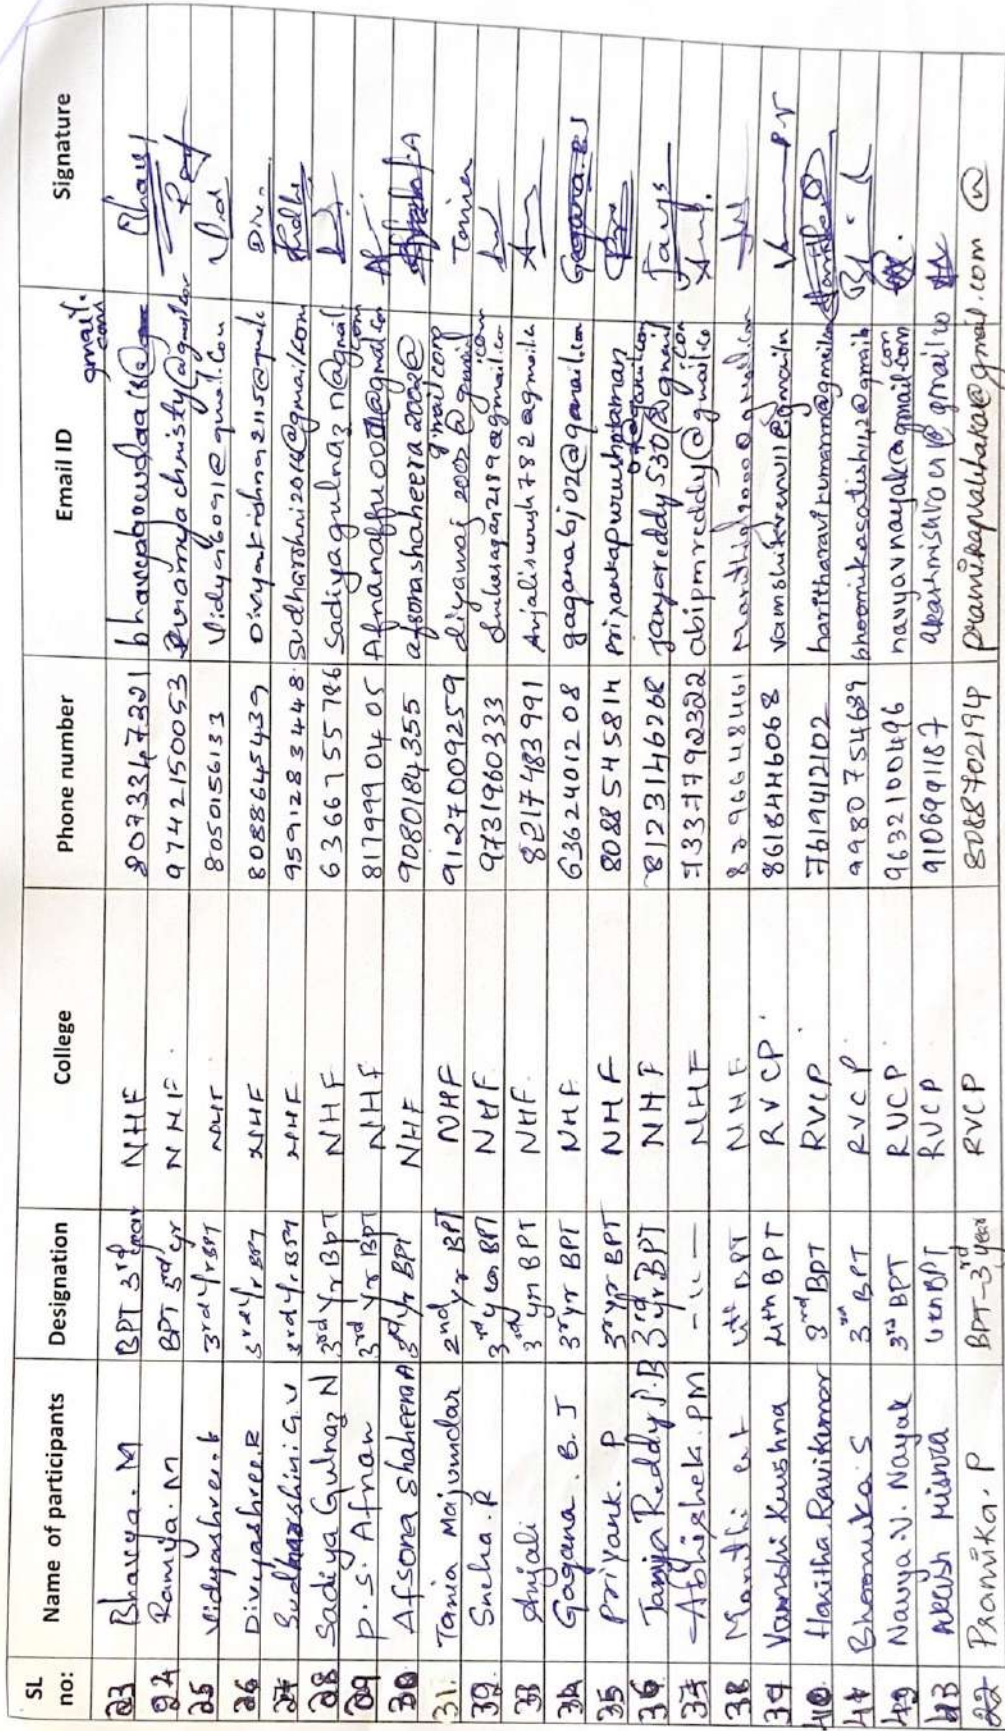 SL no: Name of participants Designation College Phone number Email ID Signature
23 Bhavya. M BPT 3rd year NHF 8073347221 bhavyabgowdaa18@gmail.com Bhavy
24 Ramya. M BPT 3rd yr NHF 9742150053 Ramyachristy@gmail.com
25 Vidyashree. b 3rd yr BPT NHF 8050156133 Vidyab6091@gmail.com Vid
26 Divyashree. R 3rd yr BPT NHF 8088645439 Divyakrishna2115@gmail Div.
27 Sudharshini G. V 3rd yr BPT NHF 9591283448 Sudharshni2014@gmail.com Sudhe
28 Sadiya Gulnaz N 3rd yr BPT NHF 6366755786 Sadiyagulnazn@gmail.com
29 P. S. Afnan 3rd yr BPT NHF 8199990405 Af
30 Afsona Shaheera A 3rd yr BPT NHF 9080184355 afsonashaheera2002@gmail.com
31. Tania Majumdar 2nd yr BPT NHF 9127009259 diyamaj2002@gmail.com Tania
32 Sneha. R 3rd year BPT NHF 9731960333
33 Anjali 3rd yr BPT NHF 8217483991 An
34 Gagana. B. J 3rd yr BPT NHF 6362401208 gaganabj02@gmail.com Gagana. BJ
35 Priyank. P 3rd yr BPT NHF 8088545814
36 Tanya Reddy J. B 3rd yr BPT NHF 8123146268 Tanyareddy530@gmail.com Tanya
37 Abhishek. PM - 11 - NHF 7337792322 abipmreddy@gmail.com
38 4th BPT NHF 8296648461
39 Vamshi Krushna 4th BPT RVCP. 8618446068
40 Haritha Ravikumar 3rd BPT RVCP 7619412102 haritharavikumarr@gmail.com Haritha
41 Bhoomika. S 3rd BPT RVCP 9980754689 bhoomikasatish42@gmail.com
42 Navya. V. Nayak 3rd BPT RVCP 9632100496 navyavnayak@gmail.com
43 Akash Mishra 4th BPT RVCP 9106991187
22 Pranika. P BPT-3rd year RVCP 8088702194